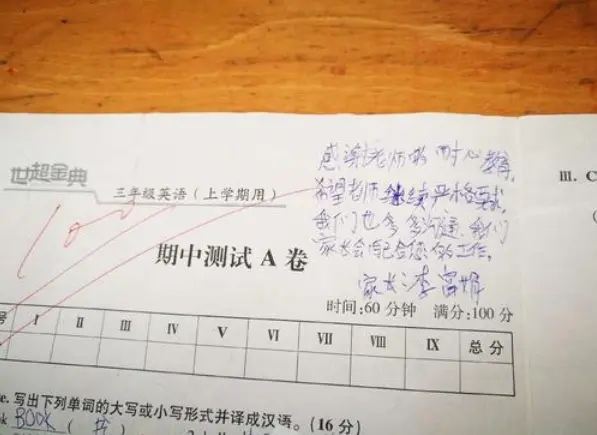 世超金典
三年级英语(上学期用)
100
感谢老师的耐心教育,
希望老师继续严格要求,
我们也多多沟通,我们
家长会配合您的工作。
家长:李富娟
期中测试 A 卷
时间:60 分钟 满分:100 分
号 I II III IV V VI VII VIII IX 总 分
III. C
e. 写出下列单词的大写或小写形式并译成汉语。(16 分)
k BOOK ( 书 )